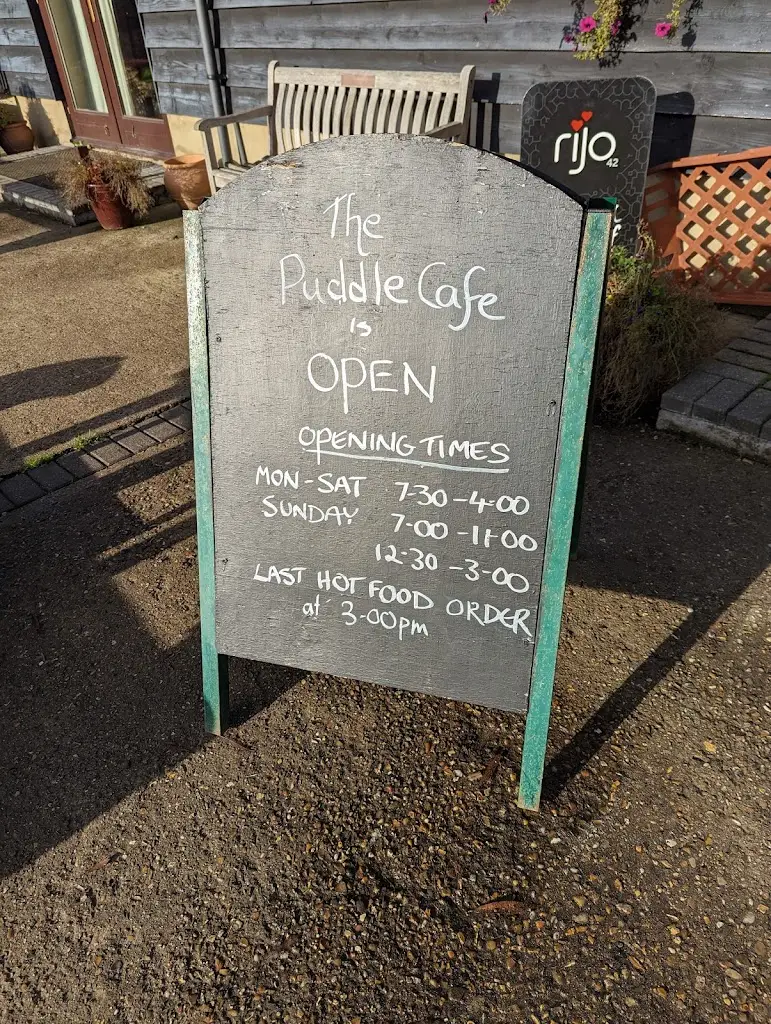 rijo
42
The
Puddle Cafe
is
OPEN
OPENING TIMES
MON-SAT 7-30-4-00
SUNDAY 7-00-11-00
12-30-3-00
LAST HOT FOOD ORDER
at 3-00pm